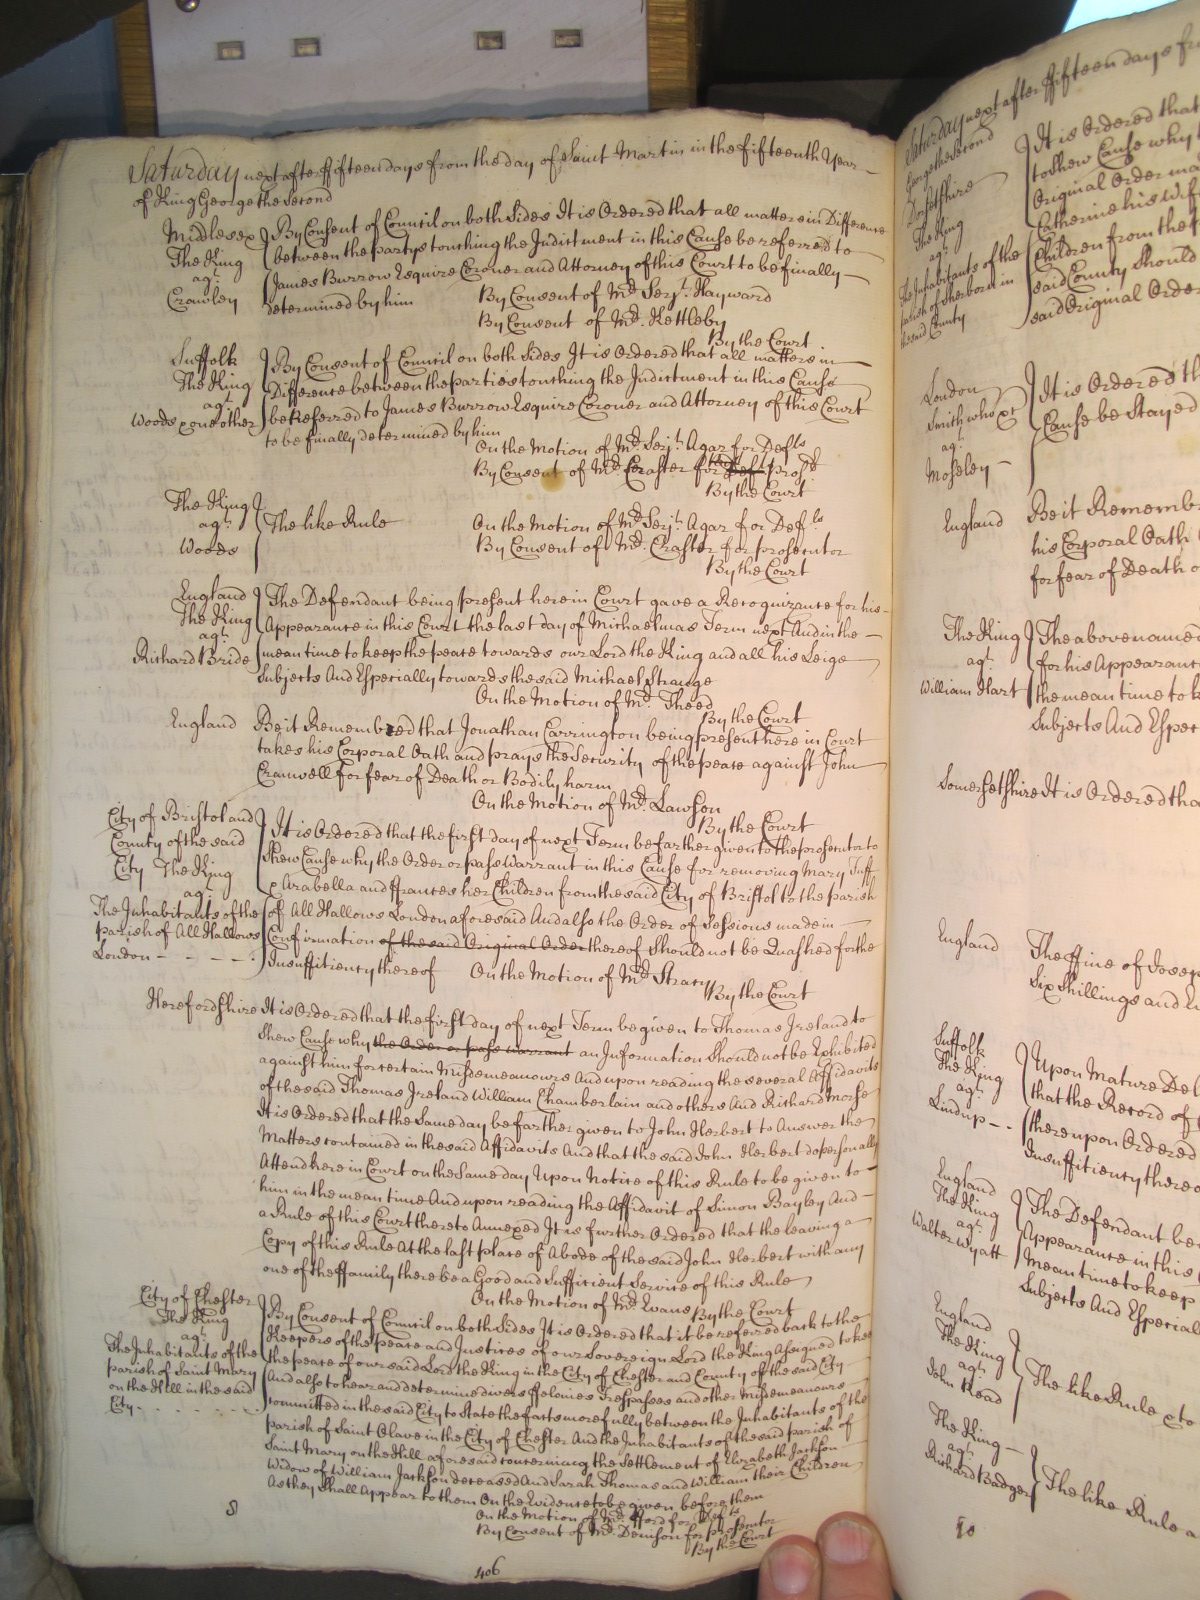 Saturday next after fifteen days from the day of Saint Martin in the fifteenth Year
of King George the Second
Middlesex
The King
agt.
Crawley
By Consent of Council on both Sides It is Ordered that all matters in Difference
between the partys touching the Indictment in this Cause be referred to
James Burrow Esquire Coroner and Attorney of this Court to be finally
determined by him
By Consent of Mr. Serjt. Hayward
By Consent of Mr. Kettleby
By the Court
Suffolk
The King
agt.
Woods & one other
By Consent of Council on both Sides It is Ordered that all matters in
Difference between the parties touching the Indictment in this Cause
be Referred to James Burrow Esquire Coroner and Attorney of this Court
to be finally determined by him
On the Motion of Mr. Serjt. Agar for Defts
By Consent of Mr. Craster for Deft prosr
By the Court
The King
agt.
Woods
The like Rule
On the Motion of Mr. Serjt. Agar for Defts
By Consent of Mr. Craster for prosecutor
By the Court
England
The King
agt.
Richard Bride
The Defendant being present here in Court gave a Recognizance for his
Appearance in this Court the last day of Michaelmas Term next And in the
mean time to keep the peace towards our Lord the King and all his Leige
Subjects And Especially towards the said Michael Strange
On the Motion of Mr. Theed
By the Court
England
Be it Remembred that Jonathan Carrington being present here in Court
takes his Corporal Oath and prays the Security of the peace against John
Cramwell for fear of Death or Bodily harm
On the Motion of Mr. Lawson
By the Court
City of Bristol and
County of the said
City The King
agt.
The Inhabitants of the
parish of All Hallows
London
It is Ordered that the first day of next Term be farther given to the prosecutor to
Shew Cause why the Order or pass Warrant in this Cause for removing Mary Tuff
& Arabella and Frances her Children from the said City of Bristol to the parish
of All Hallows London aforesaid And also the Order of Sessions made in
Confirmation of the said Original Order thereof Should not be Quashed for the
Insuffitiency thereof On the Motion of Mr. Stracy
By the Court
Herefordshire It is Ordered that the first day of next Term be given to Thomas Ireland to
Shew Cause why the Order or pass warrant an Information Should not be Exhibited
against him for certain Misdemeanours And upon reading the several Affidavits
of the said Thomas Ireland William Chamberlain and others And Richard Morse
It is Ordered that the Same day be farther given to John Herbert to Answer the
Matters contained in the said Affidavits And that the said John Herbert do personally
Attend here in Court on the Same day Upon Notice of this Rule to be given to
him in the mean time And upon reading the Affidavit of Simon Bayley And
a Rule of this Court thereto Annexed It is further Ordered that the leaving a
Copy of this Rule At the last place of Abode of the said John Herbert with any
one of the family there be a Good and Sufficient Service of this Rule
On the Motion of Mr. Evans By the Court
City of Chester
The King
agt.
The Inhabitants of the
parish of Saint Mary
on the Hill in the said
City
By Consent of Council on both Sides It is Ordered that it be referred back to the
Keepers of the peace and Justices of our Sovereign Lord the King Assigned to keep
the peace of our said Lord the King in the City of Chester and County of the said City
And also to hear and determine divers ffelonies Trespasses and other Misdemeanours
committed in the said City to State the facts more fully between the Inhabitants of the
parish of Saint Olave in the City of Chester And the Inhabitants of the said parish of
Saint Mary on the Hill aforesaid concerning the Settlement of Elizabeth Jackson
Widow of William Jackson deceased And Sarah Thomas and William their Children
As they Shall Appear to them On the Evidence to be given before them
On the Motion of Mr. fford for Defts
By Consent of Mr. Denison for prosecutor
By the Court
406
Saturday next after fifteen days
George the Second
Dorsetshire
The King
agt.
The Inhabitants of the
parish of Sherborn in
the said County
It is Ordered that
to Shew Cause why
Original Order
Catherine his Wife
Children from the
said County Should
said Original Order
London
Smith who &c
agt.
Moseley
It is Ordered
Cause be Stayed
England
Be it
his Corporal Oath
for fear of Death
The King
agt.
William Hart
The above named
for his Appearance
the mean time to
Subjects And
Somersetshire It is Ordered
England
The ffine of
Six Shillings and
Suffolk
The King
agt.
Lindup
Upon Mature
that the Record of
thereupon Ordered
Insuffitiency
England
The King
agt.
Walter Wyatt
The Defendant
Appearance in this
Mean time to keep
Subjects And
England
The King
agt.
John Head
The like Rule & to
The King
agt.
Richard Badger
The like Rule